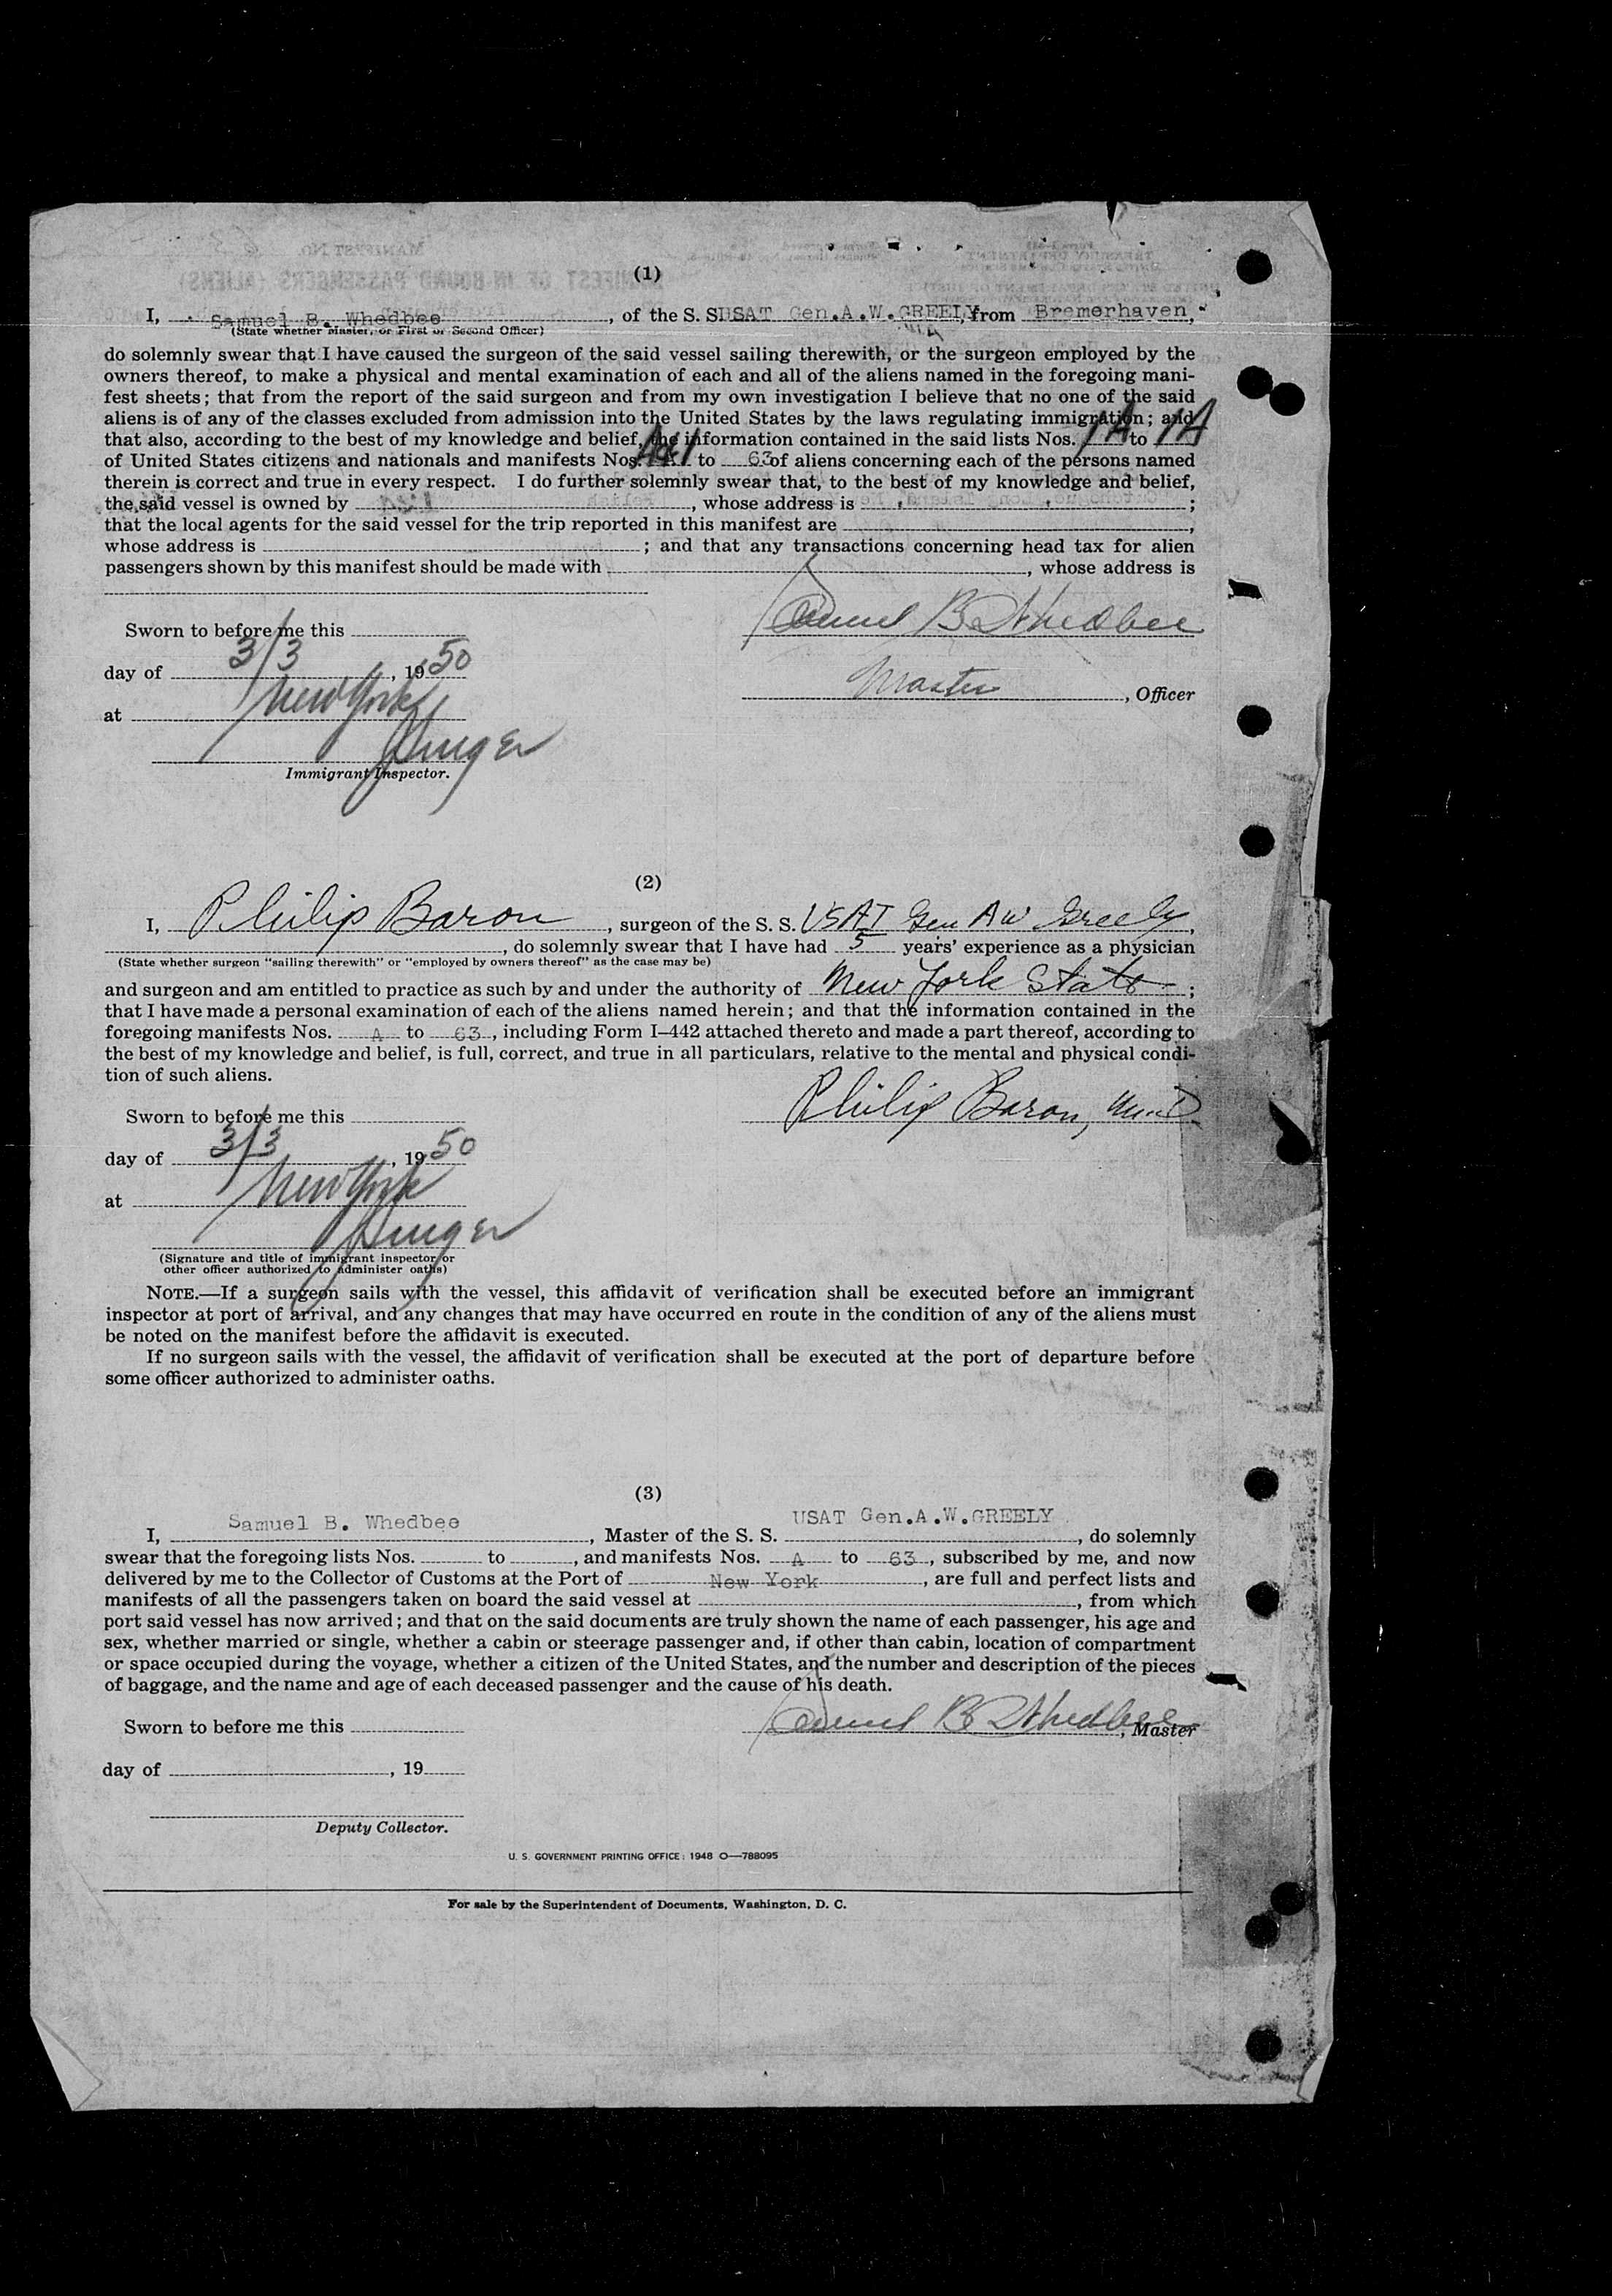 (1)
I, Samuel B. Whedbee, of the S. S. USAT Gen.A.W.GREELY, from Bremerhaven,
(State whether Master, or First or Second Officer)
do solemnly swear that I have caused the surgeon of the said vessel sailing therewith, or the surgeon employed by the
owners thereof, to make a physical and mental examination of each and all of the aliens named in the foregoing mani-
fest sheets; that from the report of the said surgeon and from my own investigation I believe that no one of the said
aliens is of any of the classes excluded from admission into the United States by the laws regulating immigration; and
that also, according to the best of my knowledge and belief, the information contained in the said lists Nos. 1A to 1A
of United States citizens and nationals and manifests Nos. A&1 to 63 of aliens concerning each of the persons named
therein is correct and true in every respect. I do further solemnly swear that, to the best of my knowledge and belief,
the said vessel is owned by , whose address is ;
that the local agents for the said vessel for the trip reported in this manifest are ,
whose address is ; and that any transactions concerning head tax for alien
passengers shown by this manifest should be made with , whose address is
Samuel B Whedbee
Sworn to before me this
day of 3/3, 1950
Master, Officer
at New York
Immigrant Inspector.
(2)
I, Philip Baron, surgeon of the S. S. USAT Gen A W Greely,
, do solemnly swear that I have had 5 years' experience as a physician
(State whether surgeon "sailing therewith" or "employed by owners thereof" as the case may be)
and surgeon and am entitled to practice as such by and under the authority of New York State;
that I have made a personal examination of each of the aliens named herein; and that the information contained in the
foregoing manifests Nos. A to 63, including Form I-442 attached thereto and made a part thereof, according to
the best of my knowledge and belief, is full, correct, and true in all particulars, relative to the mental and physical condi-
tion of such aliens.
Philip Baron, M.D
Sworn to before me this
day of 3/3, 1950
at New York
(Signature and title of immigrant inspector or
other officer authorized to administer oaths)
NOTE.—If a surgeon sails with the vessel, this affidavit of verification shall be executed before an immigrant
inspector at port of arrival, and any changes that may have occurred en route in the condition of any of the aliens must
be noted on the manifest before the affidavit is executed.
If no surgeon sails with the vessel, the affidavit of verification shall be executed at the port of departure before
some officer authorized to administer oaths.
(3)
I, Samuel B. Whedbee, Master of the S. S. USAT Gen.A.W.GREELY, do solemnly
swear that the foregoing lists Nos. to , and manifests Nos. A to 63, subscribed by me, and now
delivered by me to the Collector of Customs at the Port of New York, are full and perfect lists and
manifests of all the passengers taken on board the said vessel at , from which
port said vessel has now arrived; and that on the said documents are truly shown the name of each passenger, his age and
sex, whether married or single, whether a cabin or steerage passenger and, if other than cabin, location of compartment
or space occupied during the voyage, whether a citizen of the United States, and the number and description of the pieces
of baggage, and the name and age of each deceased passenger and the cause of his death.
Samuel B Whedbee, Master
Sworn to before me this
day of , 19
Deputy Collector.
U. S. GOVERNMENT PRINTING OFFICE: 1948 O—788095
For sale by the Superintendent of Documents, Washington, D. C.